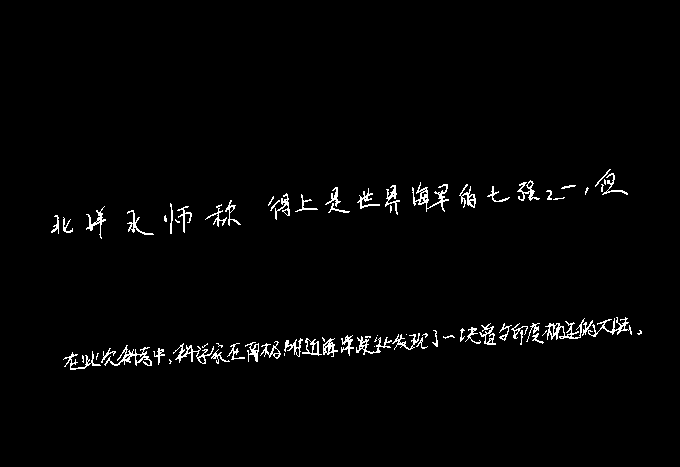 北洋水师称得上是世界海军的七强之一,但
在此次科考中,科学家在南极附近海洋深处发现了一块曾与印度相连的大陆。